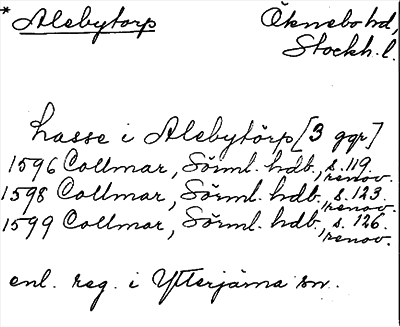 * Alebytorp Öknebo hd,
Stockh. l.
Lasse i Alebytörp [3 ggr]
1596 Collmar, Sörml. hdb., s. 119.
renov.
1598 Collmar, Sörml. hdb., s. 123.
renov.
1599 Collmar, Sörml. hdb., s. 126.
renov.
enl. reg. i Ytterjärna sn.